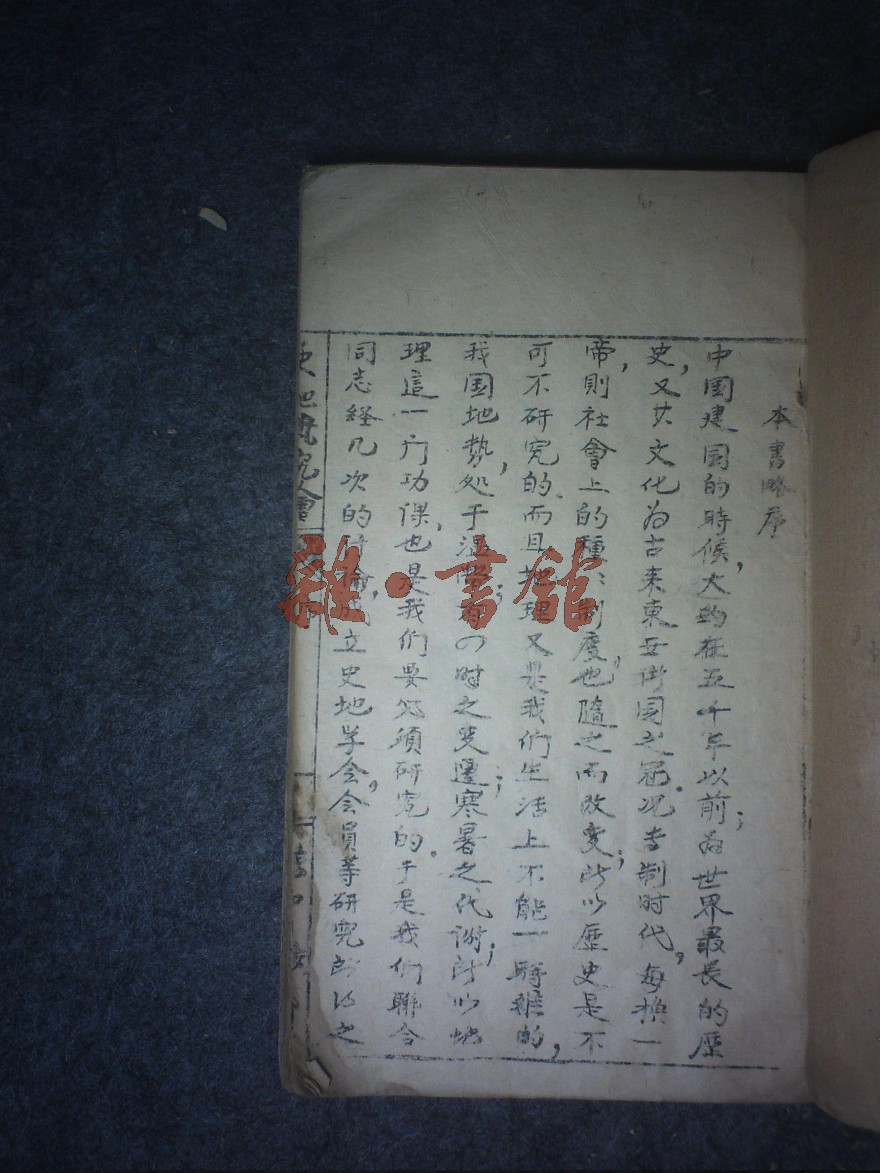 本書略序
中国建国的時候，大約在五千年以前；為世界最長的歷
史，又其文化為古来東亚諸国之冠。况专制时代，每换一
帝，則社會上的種、制度，也隨之而改变；所以歷史是不
可不研究的。而且地理又是我們生活上不能一時離的，
我国地势，处于温帶；有の时之变遷；寒暑之代謝；所以地
理這一门功课，也是我们要必須研究的。于是我们聯合
同志经几次的討論，成立史地学会，会員等研究所得之
史地研究會
雜·書館